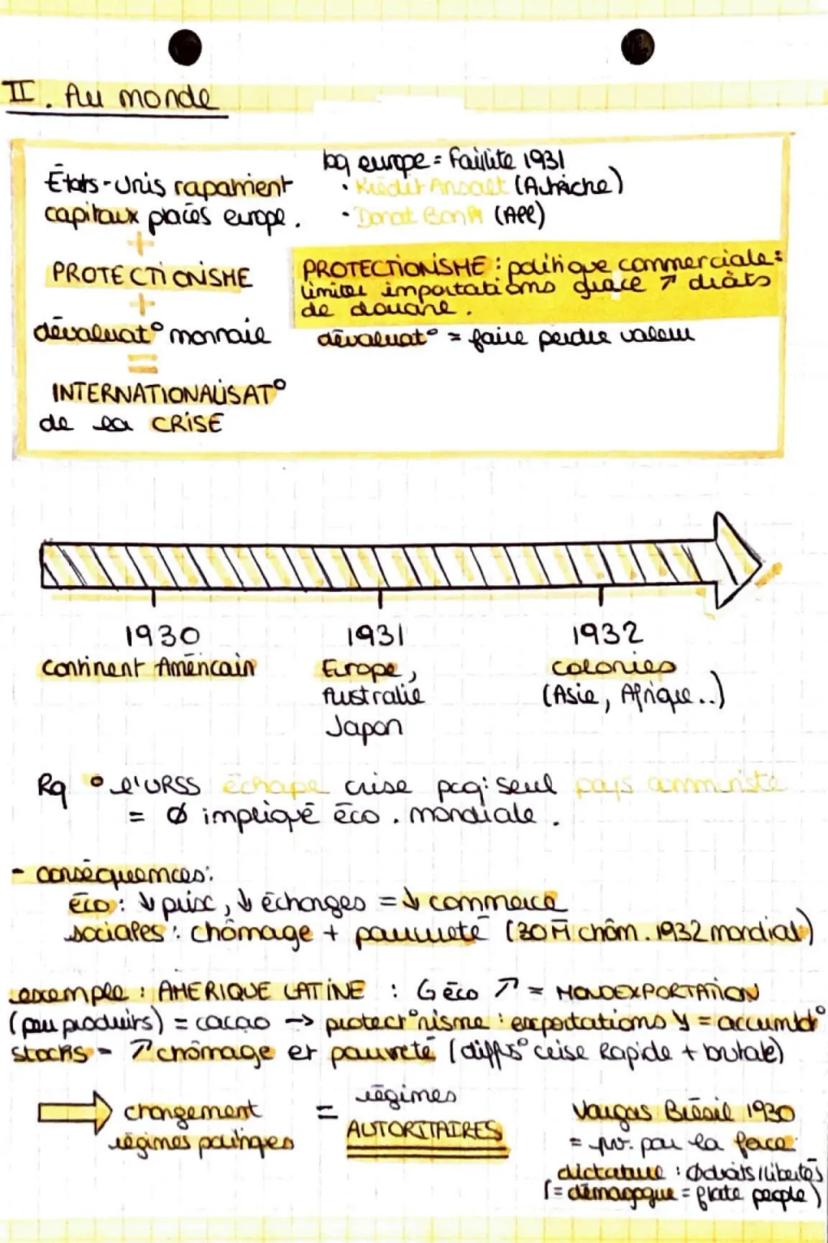 II. Au monde
États-Unis rapatrient
capitaux placés europe.
+
PROTECTIONISME
+
dévaluat° monnaie
=
INTERNATIONALISAT°
de la CRISE
bq europe = Faillite 1931
• Kredit Anstalt (Autriche)
• Donat Bank (All)
PROTECTIONISME : politique commerciale :
limiter importations grace ↗ droits
de douane.
dévaluat° = faire perdre valeur
1930
Continent Américain
1931
Europe,
Australie
Japon
1932
Colonies
(Asie, Afrique..)
Rq ° l'URSS échape crise pcq: seul pays communiste
= Ø impliqué éco. mondiale.
- conséquences:
éco : ↓ prix, ↓ échanges = ↓ commerce
sociales : chômage + pauvreté (30 M chôm. 1932 mondial)
exemple : AMERIQUE LATINE : G éco ↗ = MONOEXPORTATION
(peu produits) = cacao → protect°nisme : exportations ↘ = accumlat°
stocks = ↗ chômage et pauvreté (diffs° crise Rapide + brutale)
changement
régimes politiques
= régimes
AUTORITAIRES
Vargas Brésil 1930
= pv. par la force
dictature : Ø droits/libertés
(= démagogue = flate people)